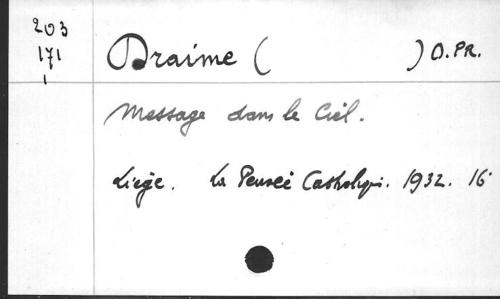 203
171
1
Draime (          ) O.PR.
Message dans le Ciel.
Liège. La Pensée Catholique. 1932. 16°